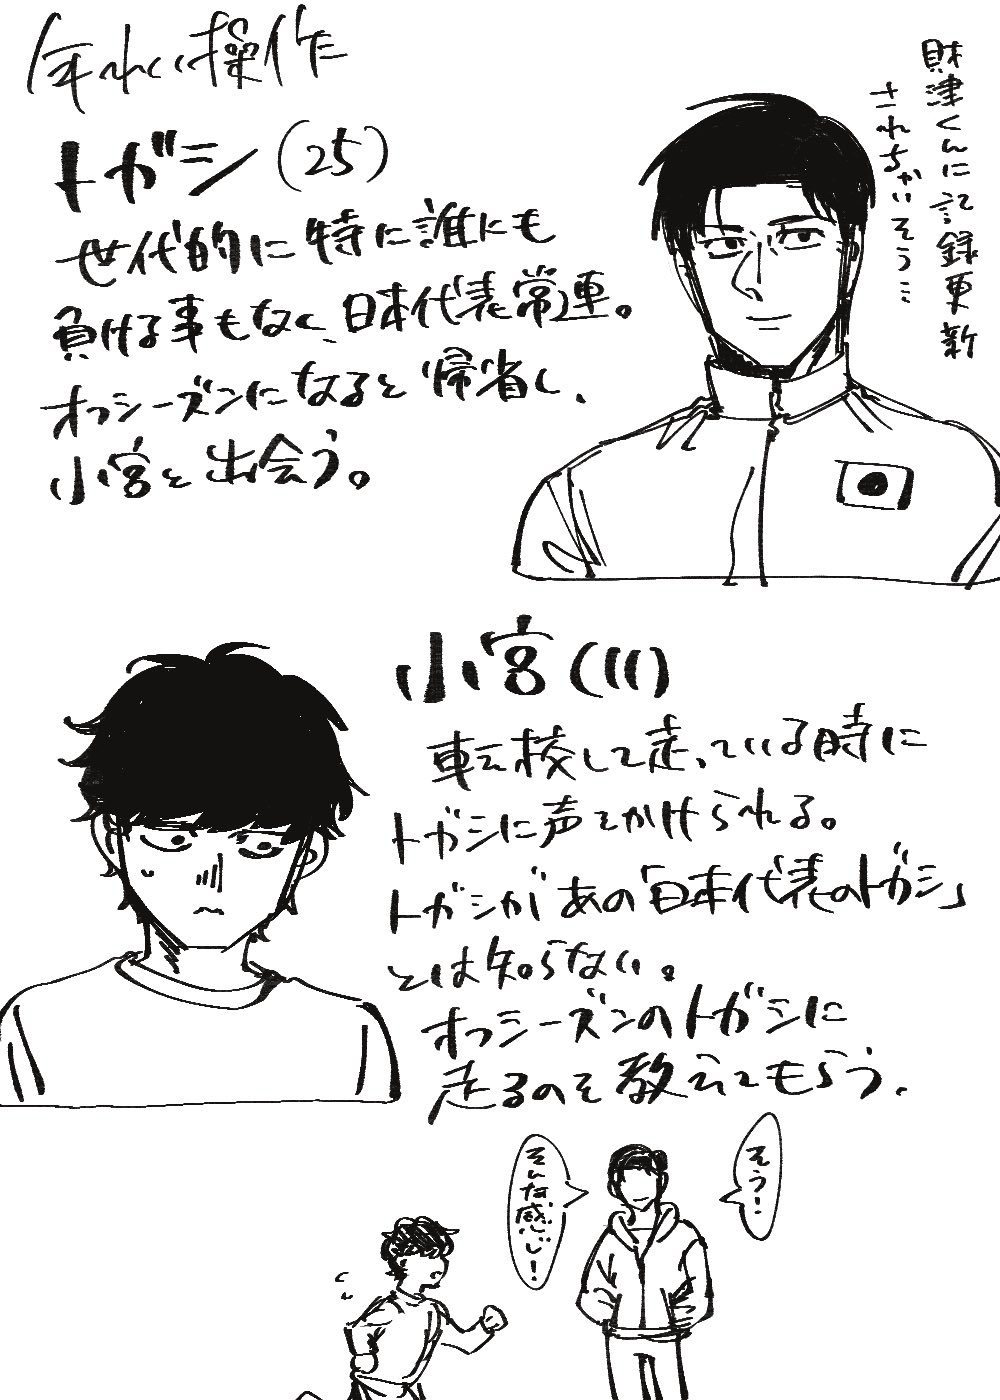 年れい操作
トガシ(25)
世代的に特に誰にも
負ける事もなく、日本代表常連。
オフシーズンになると帰省し、
小宮と出会う。
財津くんに記録更新
されちゃいそう…
小宮(11)
転校して走っている時に
トガシに声をかけられる。
トガシがあの「日本代表のトガシ」
とは知らない。
オフシーズンのトガシに
走るのを教えてもらう、
そう!
そんな感じ!